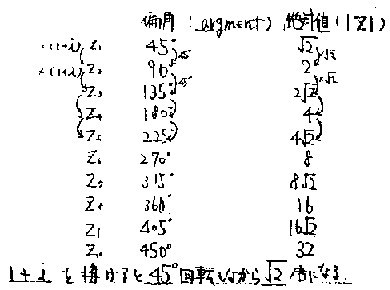 偏角 (argment) 絶対値(|Z|)
×(1+i) Z₁ 45° √2
×(1+i) Z₂ 90° 2
Z₃ 135° 2√2
Z₄ 180° 4
Z₅ 225° 4√2
Z₆ 270° 8
Z₇ 315° 8√2
Z₈ 360° 16
Z₉ 405° 16√2
Z₀ 450° 32
1+i を掛けると 45°回転しながら √2 倍になる